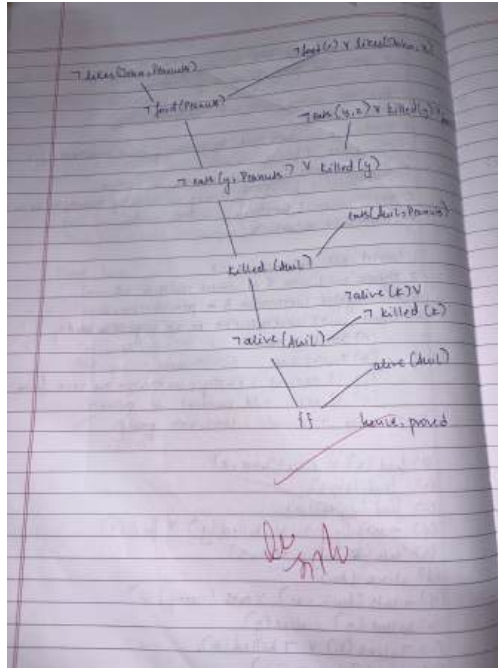 ¬food(x) v likes(John, x)
¬likes(John, Peanuts)
¬food(Peanuts)
¬eats(y, x) v killed(y) v
¬eats(y, Peanuts) v killed(y)
eats(Anil, Peanuts)
killed(Anil)
¬alive(k) v
¬killed(k)
¬alive(Anil)
alive(Anil)
{}
hence, proved